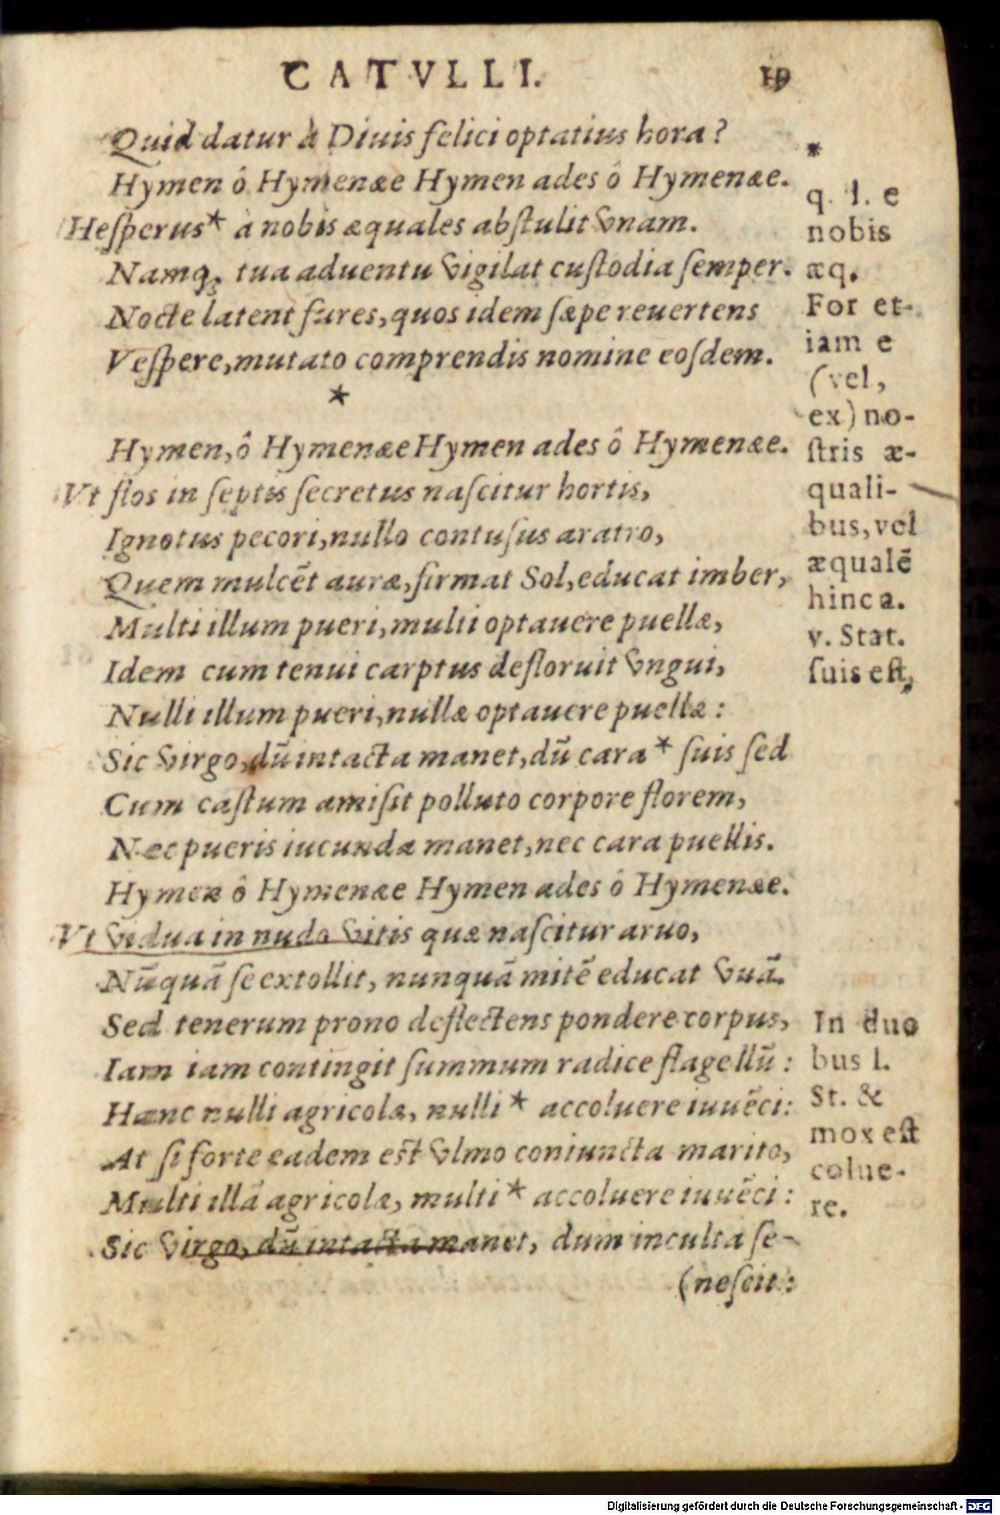 CATVLLI. 19
Quid datur à Diuis felici optatius hora?
Hymen ô Hymenæe Hymen ades ô Hymenæe.
Hesperus* à nobis æquales abstulit vnam.
Namq; tua aduentu vigilat custodia semper.
Nocte latent fures, quos idem sæpe reuertens
Vespere, mutato comprendis nomine eosdem.
*
Hymen, ô Hymenæe Hymen ades ô Hymenæe.
Vt flos in septis secretus nascitur hortis,
Ignotus pecori, nullo contusus aratro,
Quem mulcēt auræ, firmat Sol, educat imber,
Multi illum pueri, multi optauere puellæ,
Idem cum tenui carptus defloruit vngui,
Nulli illum pueri, nullæ optauere puellæ:
Sic virgo, dū intacta manet, dū cara* suis sed
Cum castum amisit polluto corpore florem,
Nec pueris iucunda manet, nec cara puellis.
Hymen ô Hymenæe Hymen ades ô Hymenæe.
Vt vidua in nudo vitis quæ nascitur aruo,
Nūquā se extollit, nunquā mitē educat vuā.
Sed tenerum prono deflectens pondere corpus,
Iam iam contingit summum radice flagellū:
Hanc nulli agricolæ, nulli* accoluere iuuēci:
At si forte eadem est vlmo coniuncta marito,
Multi illā agricolæ, multi* accoluere iuuēci:
Sic virgo, dū intacta manet, dum inculta se-
(nescit:
*
q. l. e
nobis
æq.
For et-
iam e
(vel,
ex) no-
stris æ-
quali-
bus, vel
æqualē
hinc a.
v. Stat.
suis est,
In duo
bus l.
St. &
mox est
colue-
re.
Digitalisierung gefördert durch die Deutsche Forschungsgemeinschaft - DFG